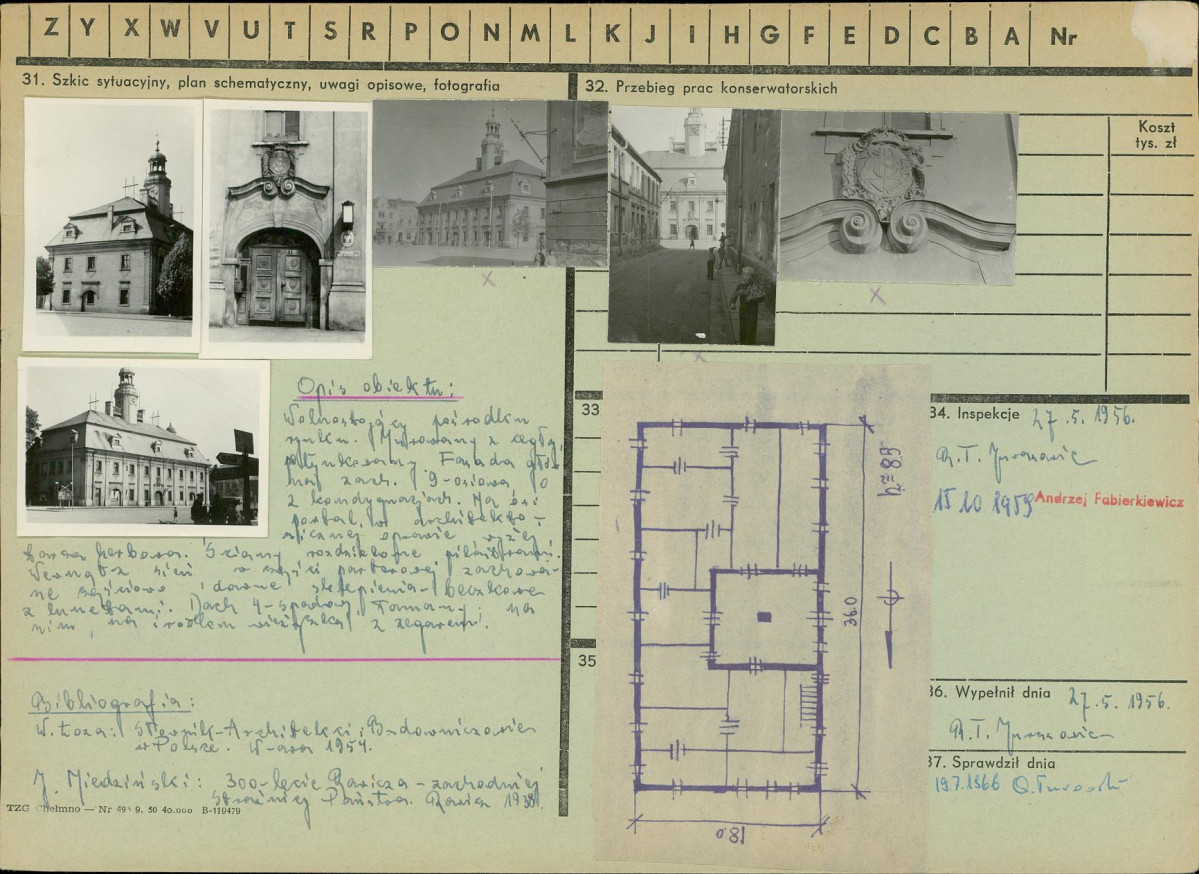 Z Y X W V U T S R P O N M L K J I H G F E D C B A Nr
31. Szkic sytuacyjny, plan schematyczny, uwagi opisowe, fotografia
32. Przebieg prac konserwatorskich
Koszt
tys. zł
Opis obiektu:
Wolnostojący pośrodku
rynku. Murowany z cegły,
potynkowany Fasada głów
zach. 9-osiowa o
2 kondygnacjach. Na osi
portal, w architekto-
nicznej oprawie wyżej
herbowa. Ściany rozdzielone pilastrami.
Wewnątrz sień w części parterowej zachowa-
ne częściowo dawne sklepienia beczkowe
z lunetami. Dach 4-spadowy łamany; na
nim, na środku wieżyczka z zegarem.
Bibliografia:
W. Łoza: Słownik Architekci i Budowniczowie
w Polsce. W-awa 1954.
J. Miedziński: 300-lecie Rawicza - zachodniej
Strażnicy Państwa. Rawicz 1938.
TZG Chełmno — Nr 49 9. 50 40.000 B-119479
33
35
h=8,5
36.0
18.0
34. Inspekcje 27.5.1956.
R.T. Juraszowie
15.10 1959 Andrzej Fabierkiewicz
36. Wypełnił dnia 27.5.1956.
R.T.
37. Sprawdził dnia
19.7.1966